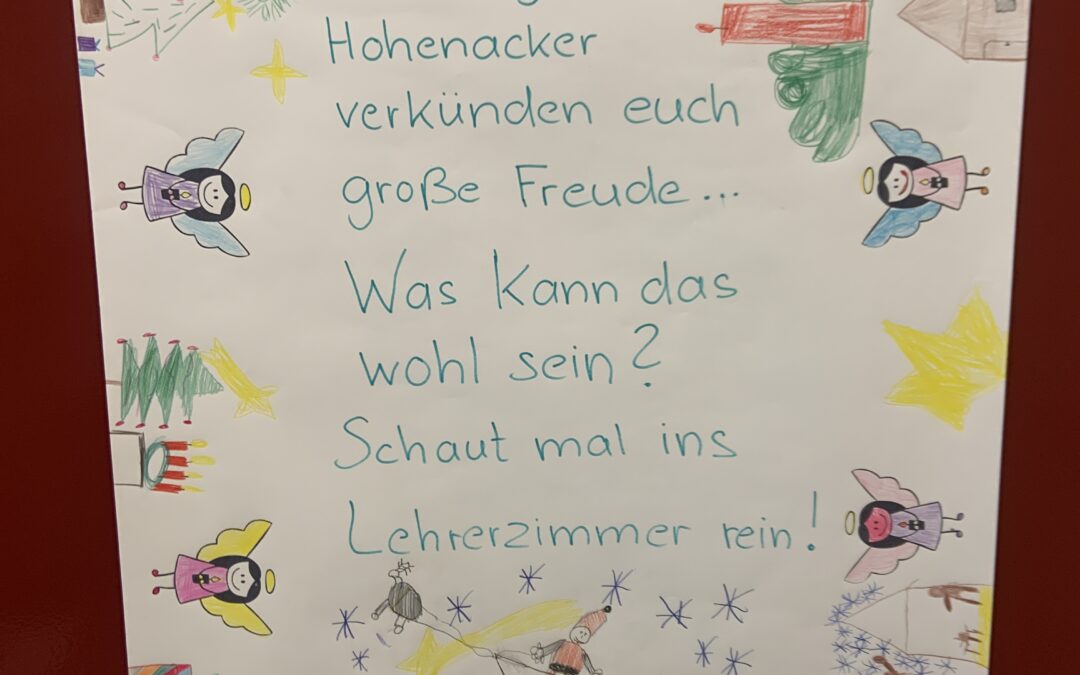 Hohenacker
verkünden euch
große Freude...
Was kann das
wohl sein?
Schaut mal ins
Lehrerzimmer rein!